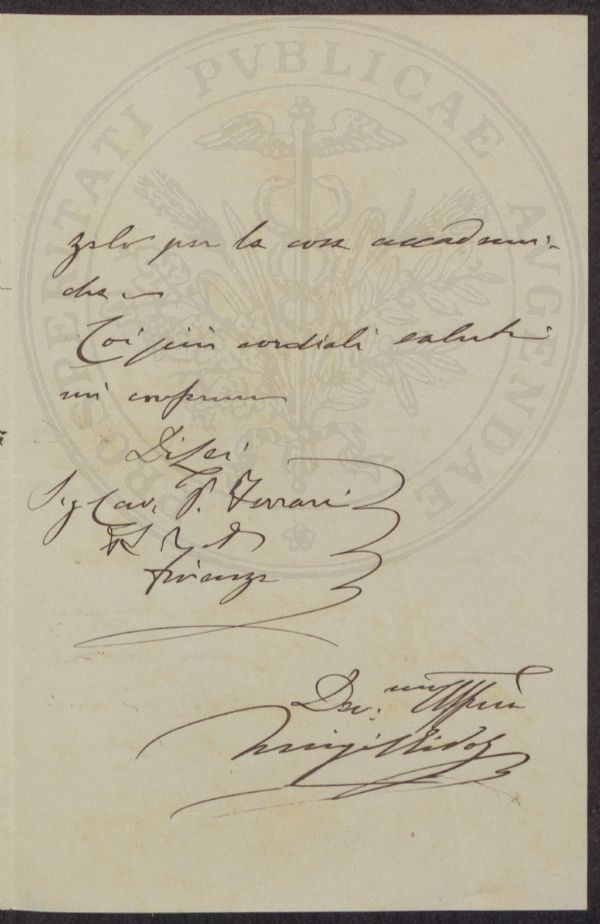 PROSPERITATI PVBLICAE AVGENDAE
zelo per le cose accademi-
che
Coi più cordiali saluti
mi confermo
Di Lei
Sig Cav. P. Ferrari
Firenze
Dev.mo Affmo
Luigi Ridolfi